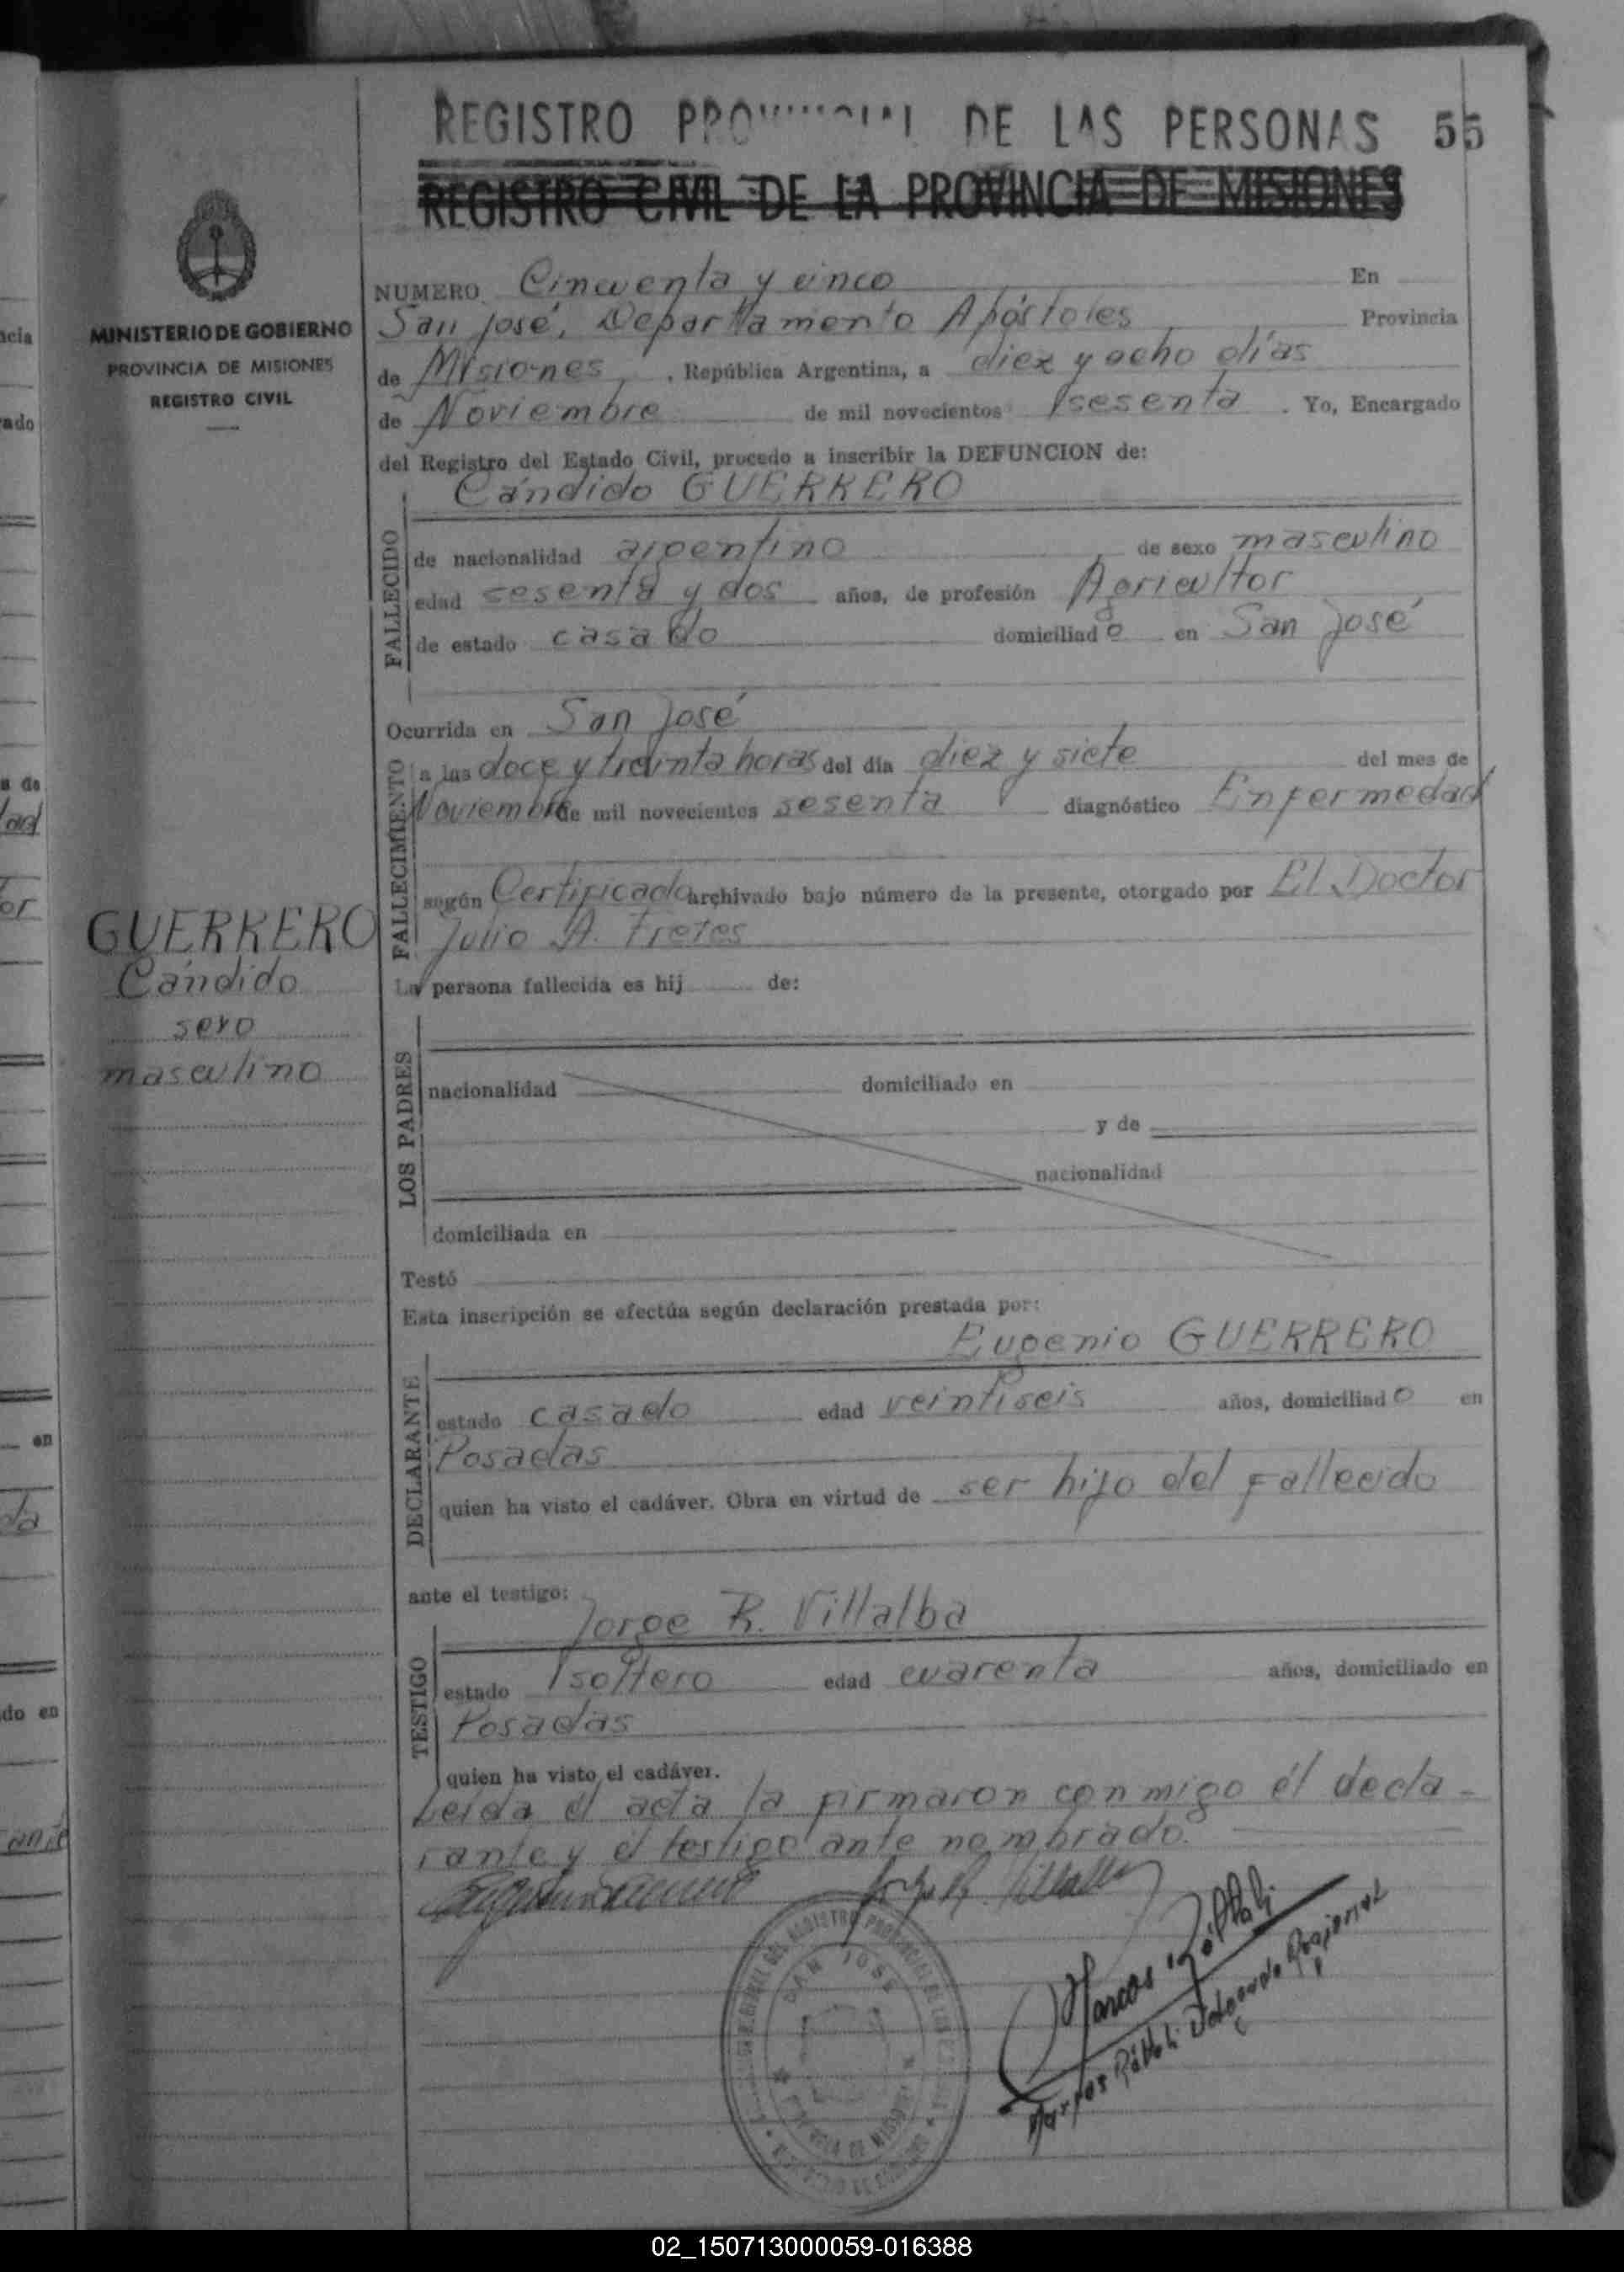 REGISTRO PROVINCIAL DE LAS PERSONAS 55
REGISTRO CIVIL DE LA PROVINCIA DE MISIONES
MINISTERIO DE GOBIERNO
PROVINCIA DE MISIONES
REGISTRO CIVIL
NUMERO Cincuenta y cinco En
San José, Departamento Apóstoles Provincia
de Misiones, República Argentina, a diez y ocho días
de Noviembre de mil novecientos sesenta. Yo, Encargado
del Registro del Estado Civil, procedo a inscribir la DEFUNCION de:
Cándido GUERRERO
FALLECIDO
de nacionalidad argentino de sexo masculino
edad sesenta y dos años, de profesión Agricultor
de estado casado domiciliado en San José
Ocurrida en San José
FALLECIMIENTO
a las doce y treinta horas del día diez y siete del mes de
Noviembre de mil novecientos sesenta diagnóstico Enfermedad
según Certificado archivado bajo número de la presente, otorgado por El Doctor
Julio A. Fretes
GUERRERO
Cándido
sexo
masculino
La persona fallecida es hij de:
LOS PADRES
nacionalidad domiciliado en
y de
nacionalidad
domiciliada en
Testó
Esta inscripción se efectúa según declaración prestada por:
Eugenio GUERRERO
DECLARANTE
estado casado edad veintiseis años, domiciliado en
Posadas
quien ha visto el cadáver. Obra en virtud de ser hijo del fallecido
ante el testigo:
Jorge R. Villalba
TESTIGO
estado soltero edad cuarenta años, domiciliado en
Posadas
quien ha visto el cadáver.
Leida el acta la firmaron conmigo él decla-
rante y el testigo ante nombrado.
Jorge R. Villalba
SAN JOSE
PROVINCIA DE MISIONES
Marcos
02_150713000059-016388